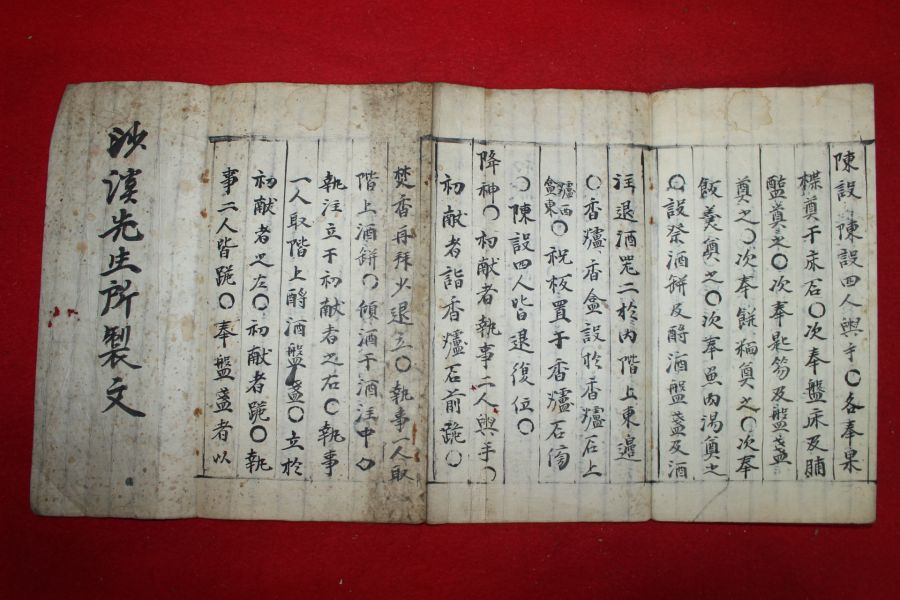 陳設 陳設四人輿手〇各奉果
楪奠于床石〇次奉盤床及脯
醢奠之〇次奉匙筯及盤盞
奠之〇次奉餠麵奠之〇次奉
飯羹奠之〇次奉魚肉湯奠之
〇設祭酒餠及酹酒盤盞及酒
注退酒器二於內階上東邊
〇香爐香盒設於香爐石上
爐西盒東〇祝板置于香爐石傍
〇陳設四人皆退復位〇
降神〇初献者執事二人輿手〇
初献者詣香爐石前跪〇
焚香再拜少退立〇執事一人取
階上酒餠〇傾酒于酒注中〇
執注立于初献者之右〇執事
一人取階上酹酒盤盞〇立於
初献者之左〇初献者跪〇執
事二人皆跪〇奉盤盞者以
沙溪先生所製文